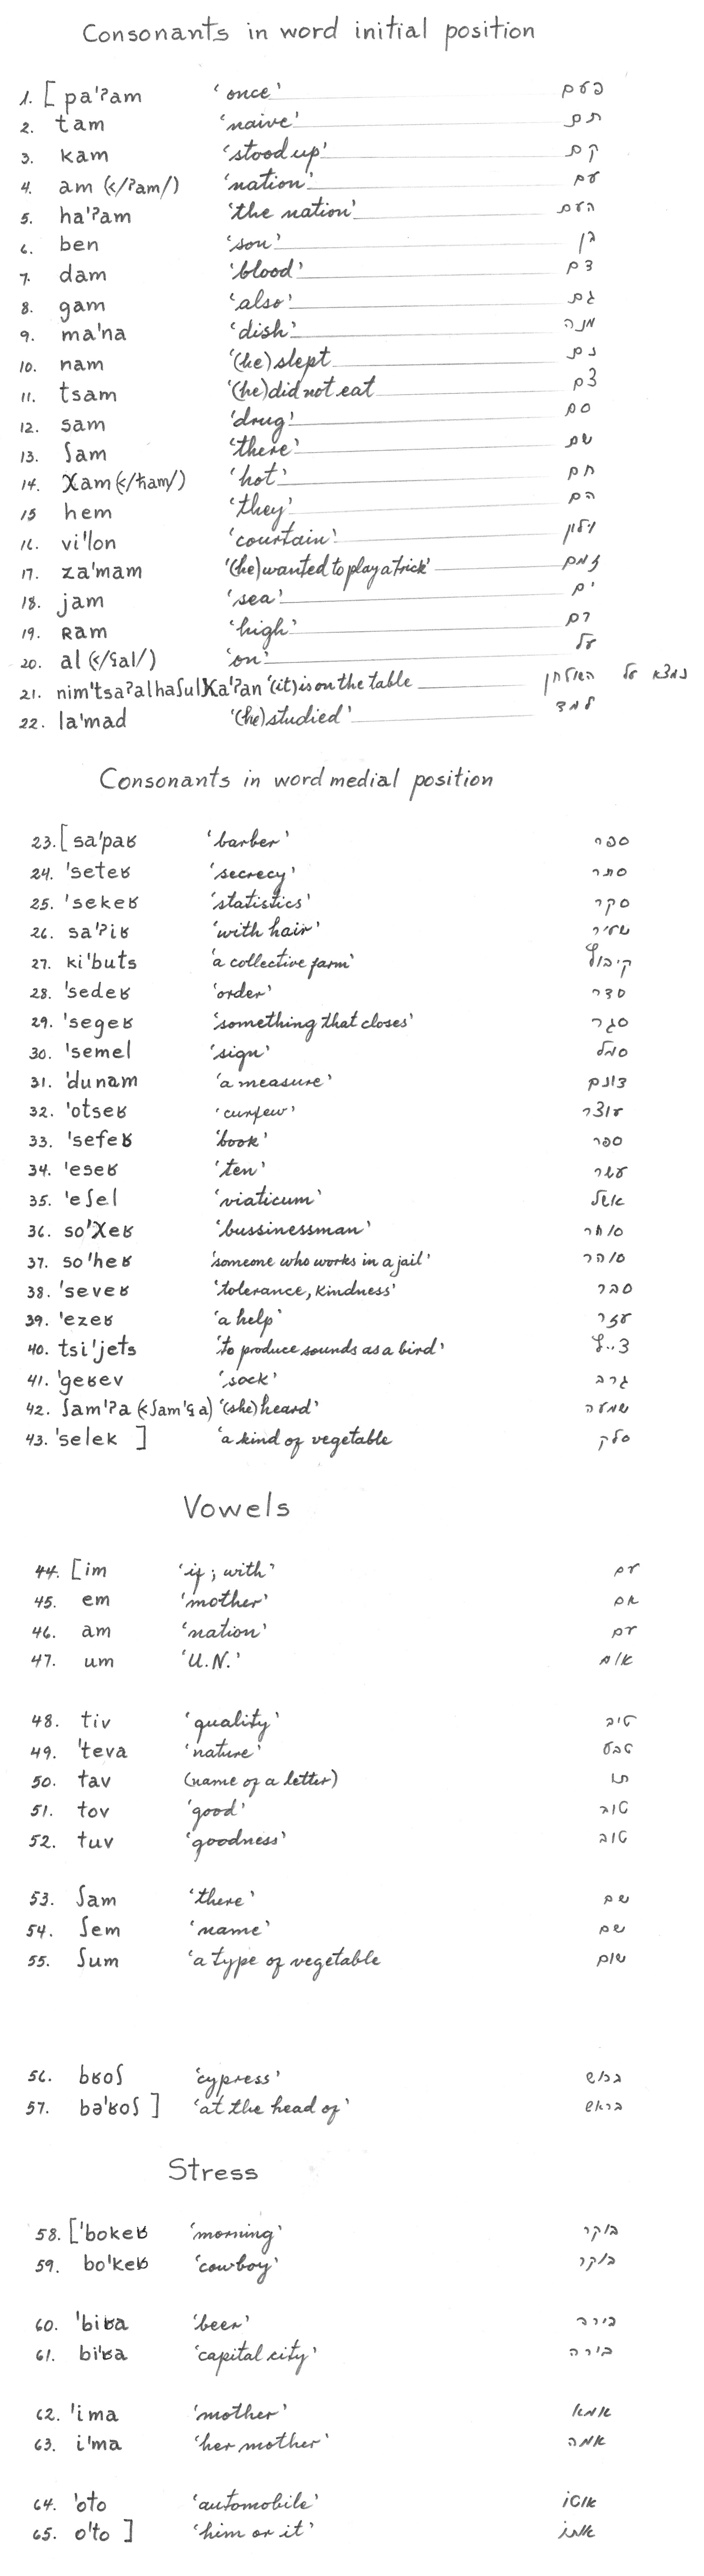 Consonants in word initial position
1. [ pa'ʔam 'once' פעם
2. tam 'naive' תם
3. kam 'stood up' קם
4. am (</ʔam/) 'nation' עם
5. ha'ʔam 'the nation' העם
6. ben 'son' בן
7. dam 'blood' דם
8. gam 'also' גם
9. ma'na 'dish' מנה
10. nam '(he) slept נם
11. tsam '(he) did not eat צם
12. sam 'drug' סם
13. ʃam 'there' שם
14. χam (</ħam/) 'hot' חם
15 hem 'they' הם
16. vi'lon 'courtain' וילון
17. za'mam '(he) wanted to play a trick' זמם
18. jam 'sea' ים
19. ʀam 'high' רם
20. al (</ʕal/) 'on' על
21. nim'tsaʔalhaʃulχa'ʔan '(it) is on the table נמצא על השולחן
22. la'mad '(he) studied' למד
Consonants in word medial position
23. [ sa'paʁ 'barber' ספר
24. 'seteʁ 'secrecy' סתר
25. 'sekeʁ 'statistics' סקר
26. sa'ʔiʁ 'with hair' שעיר
27. ki'buts 'a collective farm' קיבוץ
28. 'sedeʁ 'order' סדר
29. 'segeʁ 'something that closes' סגר
30. 'semel 'sign' סמל
31. 'dunam 'a measure' דונם
32. 'otseʁ 'curfew' עוצר
33. 'sefeʁ 'book' ספר
34. 'eseʁ 'ten' עשר
35. 'eʃel 'viaticum' אשל
36. so'χeʁ 'bussinessman' סוחר
37. so'heʁ 'someone who works in a jail' סוהר
38. 'seveʁ 'tolerance, kindness' סבר
39. 'ezeʁ 'a help' עזר
40. tsi'jets 'to produce sounds as a bird' צייץ
41. 'geʁev 'sock' גרב
42. ʃam'ʔa (<ʃam'ʕa) '(she) heard' שמעה
43. 'selek ] 'a kind of vegetable סלק
Vowels
44. [im 'if ; with' עם
45. em 'mother' אם
46. am 'nation' עם
47. um 'U.N.' אום
48. tiv 'quality' טיב
49. 'teva 'nature' טבע
50. tav (name of a letter) תו
51. tov 'good' טוב
52. tuv 'goodness' טוב
53. ʃam 'there' שם
54. ʃem 'name' שם
55. ʃum 'a type of vegetable שום
56. bʁoʃ 'cypress' ברוש
57. bə'ʁoʃ ] 'at the head of' בראש
Stress
58. ['bokeʁ 'morning' בוקר
59. bo'keʁ 'cowboy' בוקר
60. 'biʁa 'beer' בירה
61. bi'ʁa 'capital city' בירה
62. 'ima 'mother' אמא
63. i'ma 'her mother' אמה
64. 'oto 'automobile' אוטו
65. o'to ] 'him or it' אותו